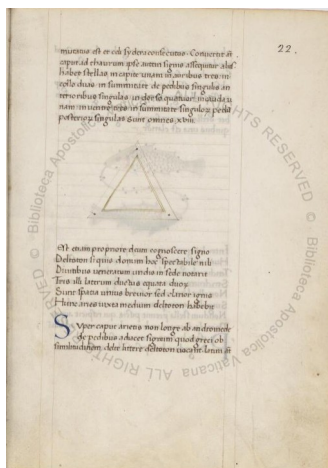 22.
mutatus est et ad sydera consecutus. Convertit āt
caput ad thaurum ipse autem signis assequitur alijs
habet stellas in capite unam in auribus tres in
collo duas in summitate de pedibus singulis an
terioribus singulas in dorso quatuor in cauda u
nam in ventre tres in summitate singulor pedū
posterior singulas Sunt omnes xviii
Est etiam propriore deum cognoscere signo
Deltoton si quis donum hoc spectabile nili
Divinbus veneratum undis in sede notarit
Tres illi laterum ductus equata duor
Sunt spatia unius brevior sed clarior ignis
Hunc aries iuxta medium deltoton habebit
Super caput arietis non longe ab andromede
de pedibus adiacet signum quod greci ob
similitudinem delte littere deltoton vocant. latini āt
Biblioteca Apostolica Vaticana
ALL RIGHTS RESERVED
©